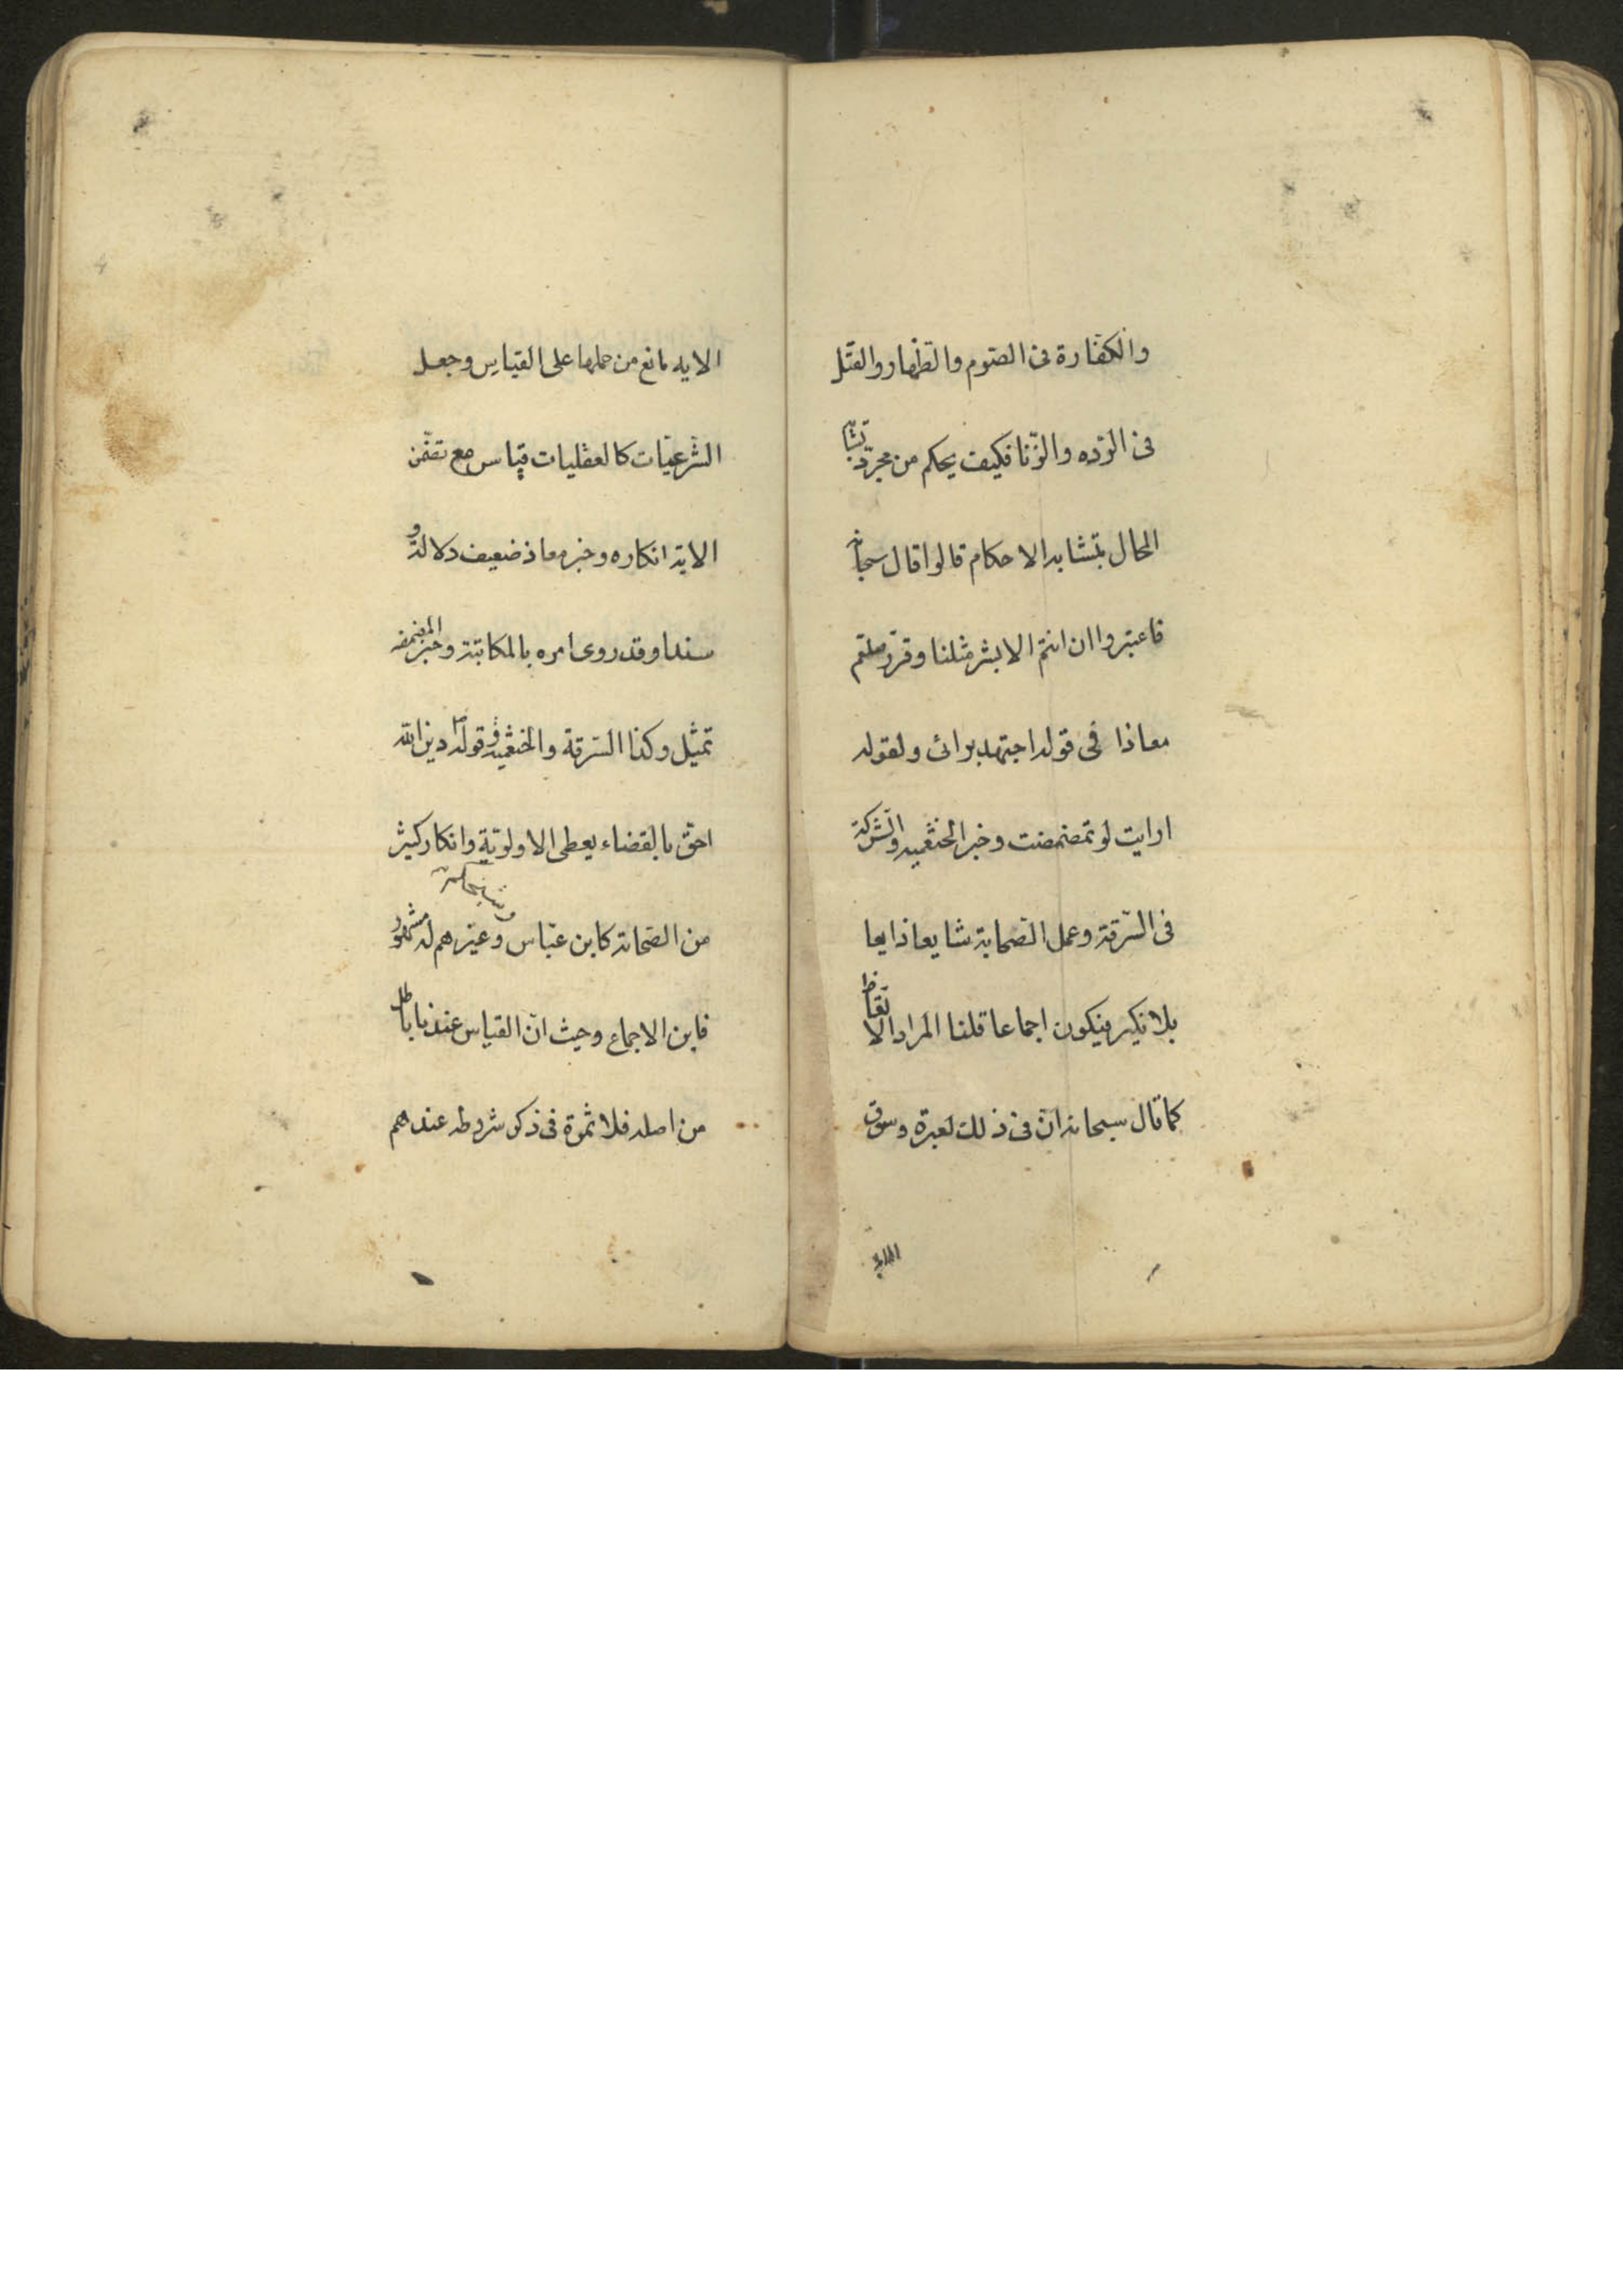 والكفارة فى الصوم والظهار والقتل
فى الردّه والزّنا فكيف يحكم من مجرّد تشابه
الحال بتشابه الاحكام قالوا قال سبحانه
فاعتبروا ان انتم الا بشر مثلنا وقرّر صلعم
معاذا فى قوله اجتهد برائى ولقوله
ارايت لو تمضمضت وخبر الخثعميه والشركة
فى السّرقة وعمل الصّحابة شايعا ذايعا
بلا نكير فيكون اجماعا قلنا المراد الاتّعاظ
كما قال سبحانه انّ فى ذلك لعبرة وسوق
الاية
الايه مانع من حملها على القياس وجعل
الشّرعيّات كالعقليات قياس مع تضمّن
الاية انكاره وخبر معاذ ضعيف دلالة و
سندا وقد روى امره بالمكاتبة وخبر المضمضه
تمثيل وكذا السّرقة والخثعميه وفى قوله ص دين الله
احقّ بالقضاء يعطى الاولويّة وانكار كثير
من الصّحابة كابن عبّاس وغيرهم له مشهور
فاين الاجماع وحيث انّ القياس عندنا باطل
من اصله فلا ثمرة فى ذكر شروطه عندهم